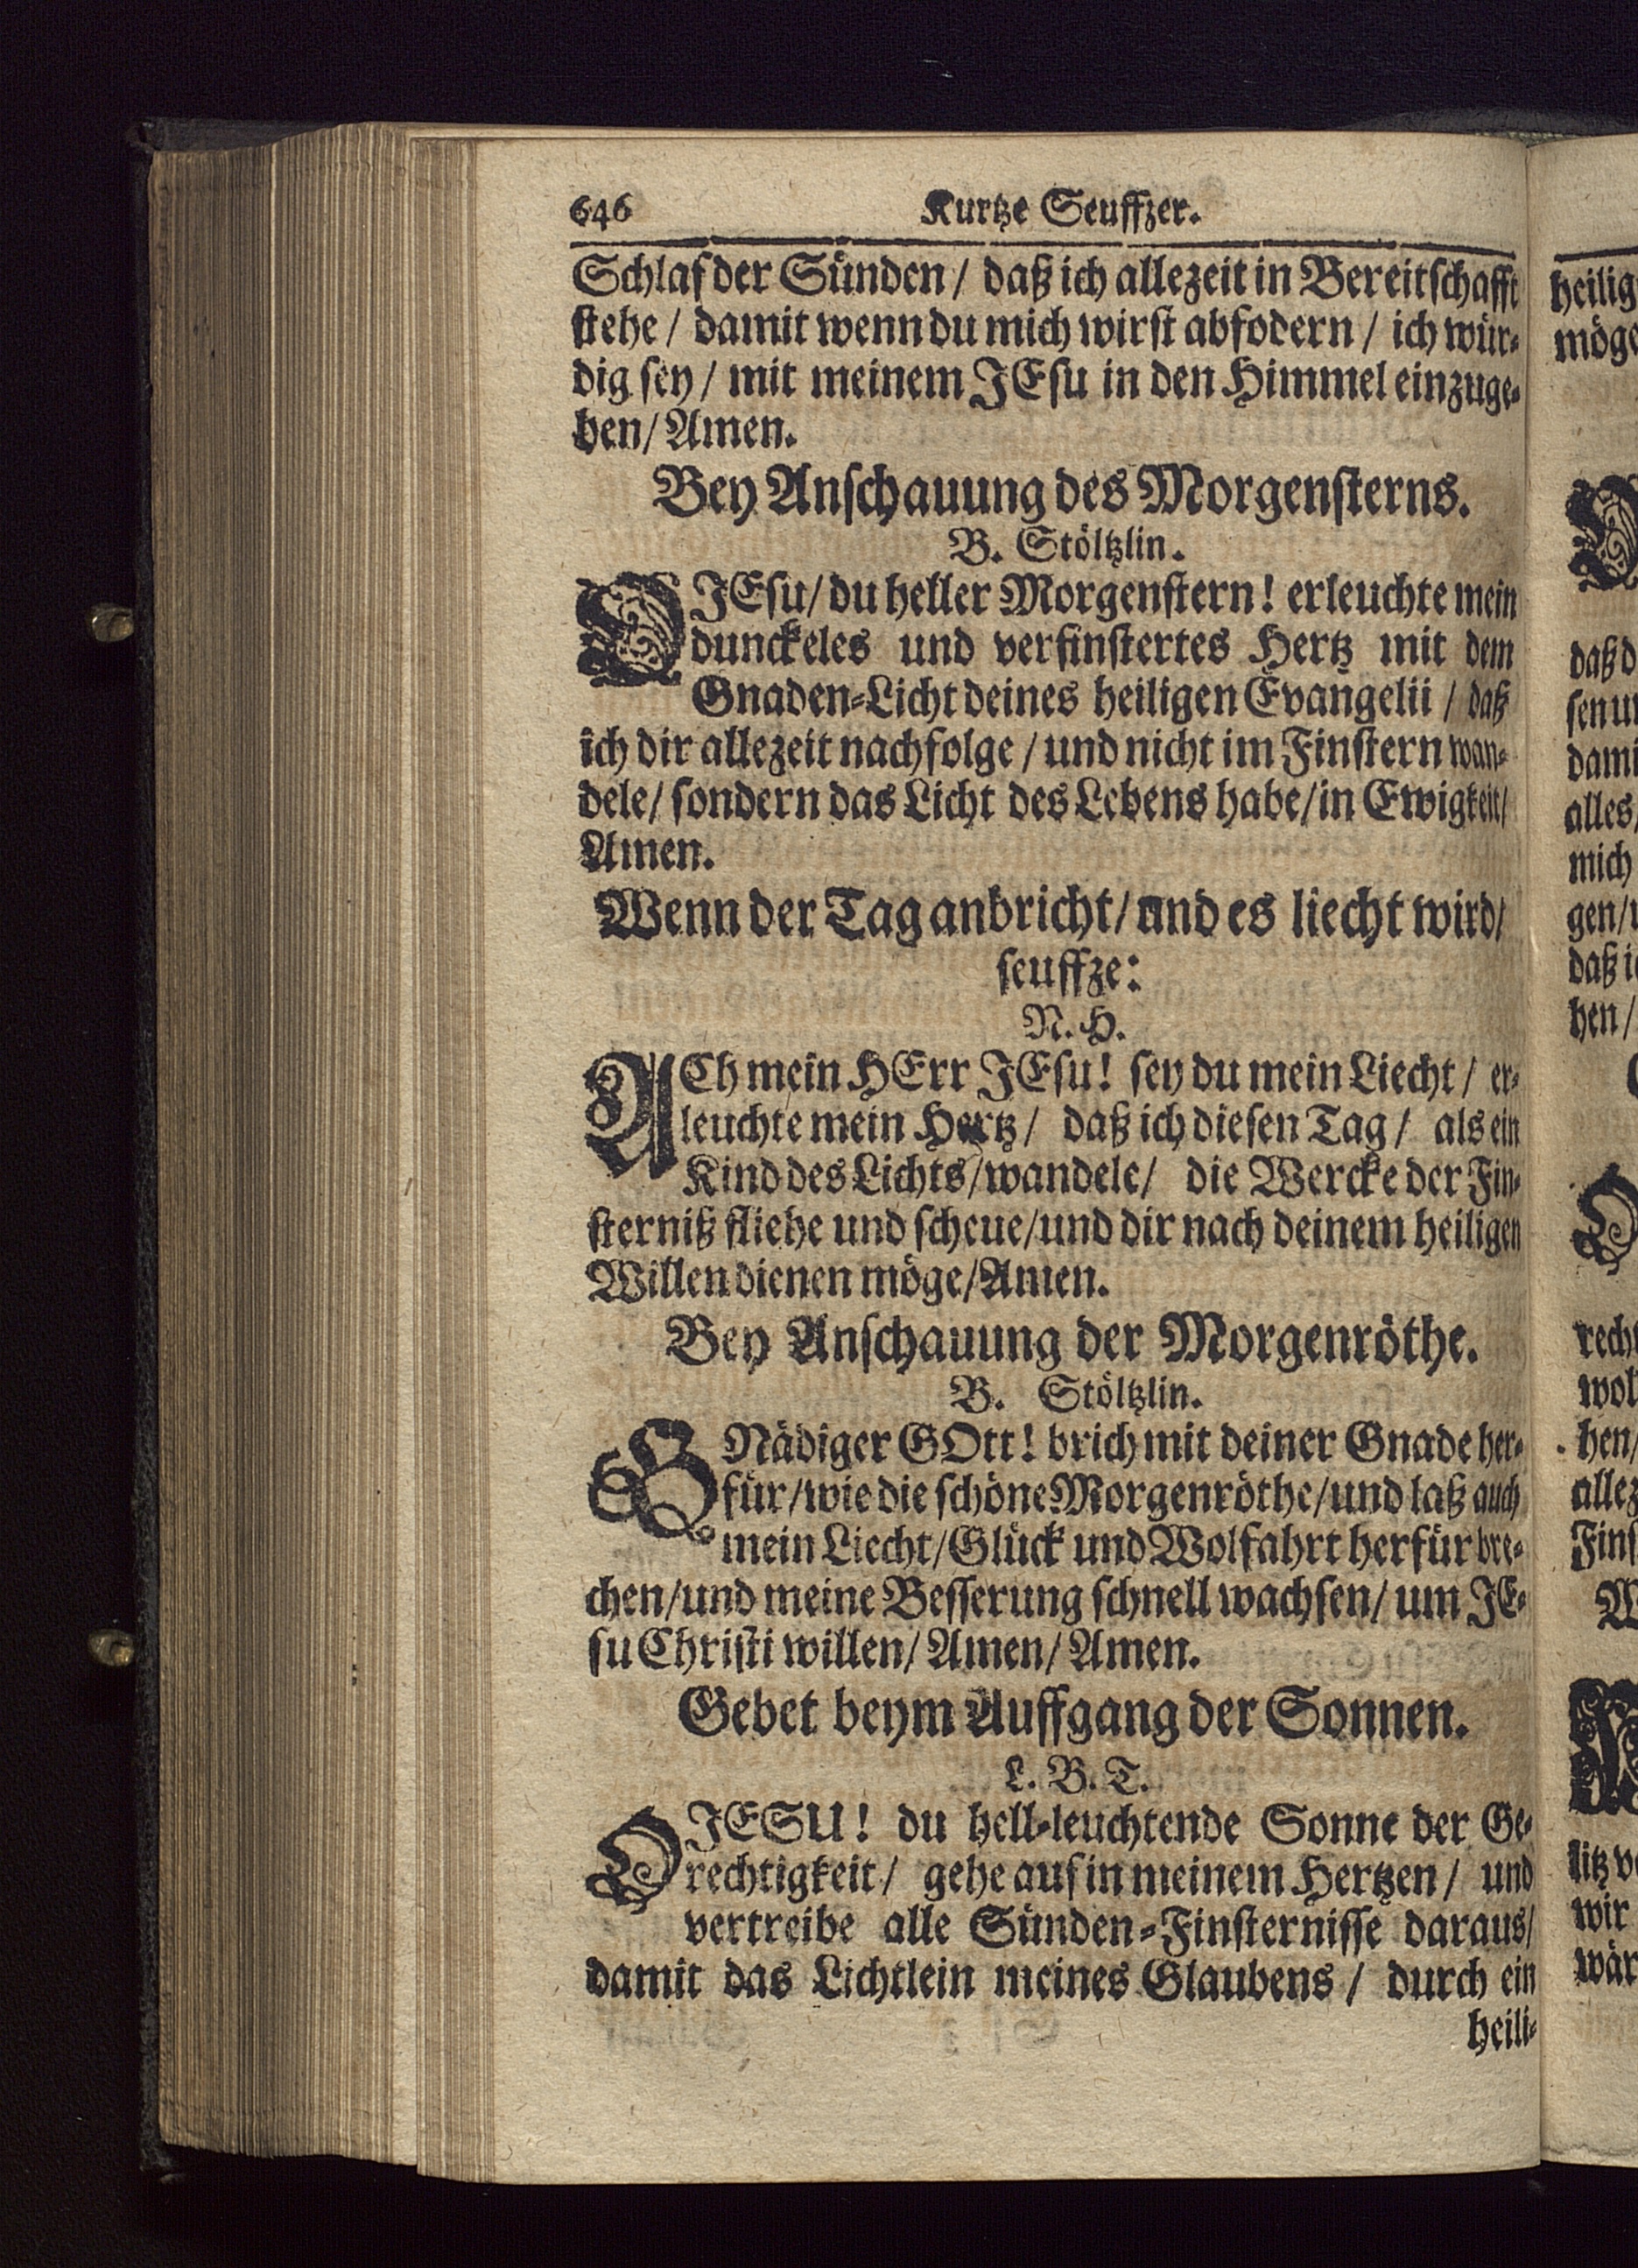 646 Kurtze Seuffzer.
Schlaf der Sünden / daß ich allezeit in Bereitschafft
stehe / damit wenn du mich wirst abfodern / ich wür-
dig sey / mit meinem JEsu in den Himmel einzuge-
hen / Amen.
Bey Anschauung des Morgensterns.
B. Stöltzlin.
O JEsu / du heller Morgenstern! erleuchte mein
dunckeles und verfinstertes Hertz mit dem
Gnaden-Licht deines heiligen Evangelii / daß
ich dir allezeit nachfolge / und nicht im Finstern wan-
dele / sondern das Licht des Lebens habe / in Ewigkeit /
Amen.
Wenn der Tag anbricht / und es liecht wird /
seuffze:
N. H.
ACh mein HErr JEsu! sey du mein Liecht / er-
leuchte mein Hertz / daß ich diesen Tag / als ein
Kind des Lichts / wandele / die Wercke der Fin-
sterniß fliehe und scheue / und dir nach deinem heiligen
Willen dienen möge / Amen.
Bey Anschauung der Morgenröthe.
B. Stöltzlin.
GNädiger GOtt! brich mit deiner Gnade her-
für / wie die schöne Morgenröthe / und laß auch
mein Liecht / Glück und Wolfahrt herfür bre-
chen / und meine Besserung schnell wachsen / um JE-
su Christi willen / Amen / Amen.
Gebet beym Auffgang der Sonnen.
L. B. T.
O JESU! du hell-leuchtende Sonne der Ge-
rechtigkeit / gehe auf in meinem Hertzen / und
vertreibe alle Sünden-Finsternisse daraus /
damit das Lichtlein meines Glaubens / durch ein
heili-